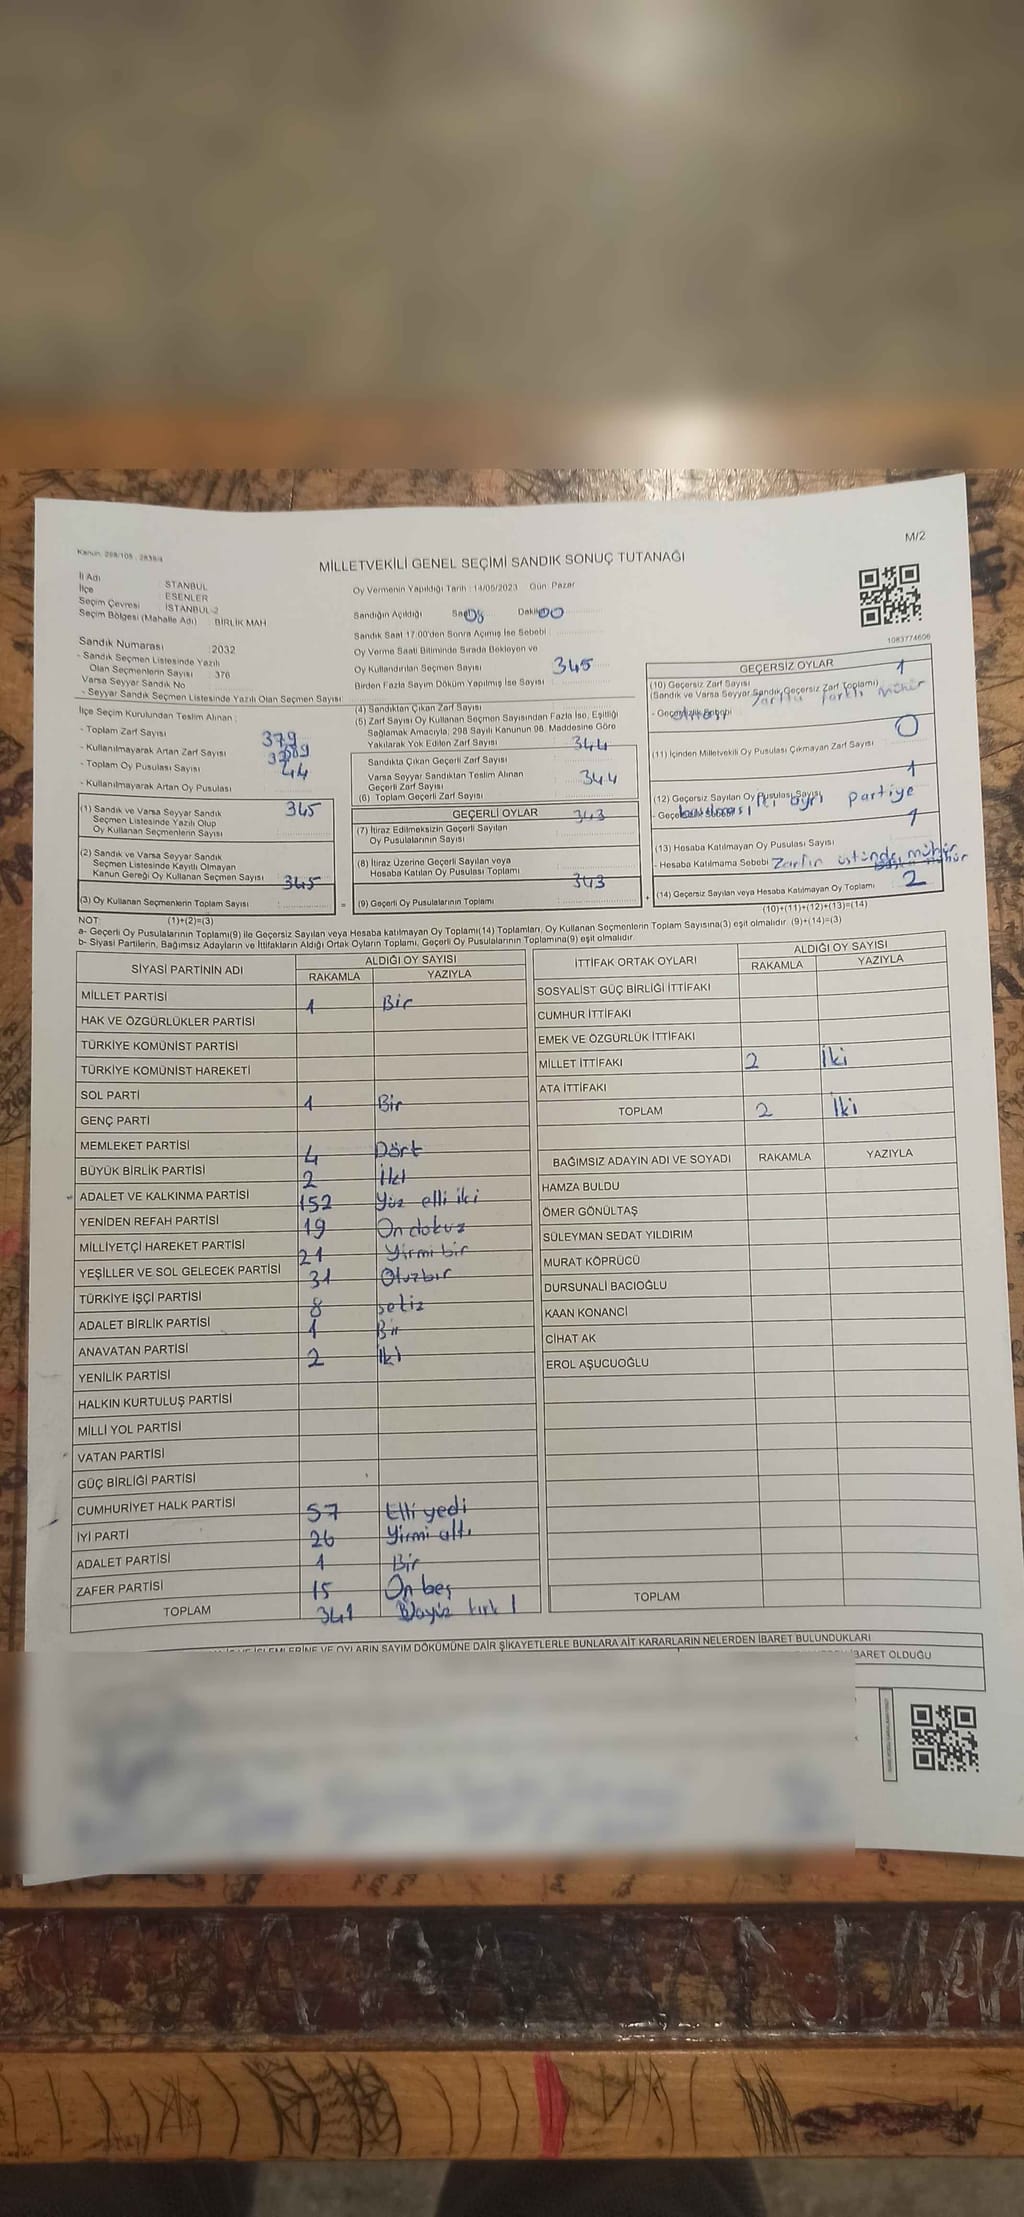 M/2
Kanun: 298/105 , 2839/4
MİLLETVEKİLİ GENEL SEÇİMİ SANDIK SONUÇ TUTANAĞI
İl Adı : STANBUL
İlçe : ESENLER
Seçim Çevresi : İSTANBUL-2
Seçim Bölgesi (Mahalle Adı) : BİRLİK MAH
Oy Vermenin Yapıldığı Tarih : 14/05/2023 Gün: Pazar
Sandığın Açıldığı Saat 08 Dakika 00
Sandık Saat 17:00'den Sonra Açımış İse Sebebi
Oy Verme Saati Bitiminde Sırada Bekleyen ve
Oy Kullandırılan Seçmen Sayısı 345
Birden Fazla Sayım Döküm Yapılmış İse Sayısı
1083774606
Sandık Numarası : 2032
- Sandık Seçmen Listesinde Yazılı
Olan Seçmenlerin Sayısı : 376
Varsa Seyyar Sandık No
- Seyyar Sandık Seçmen Listesinde Yazılı Olan Seçmen Sayısı
İlçe Seçim Kurulundan Teslim Alınan :
- Toplam Zarf Sayısı 379
- Kullanılmayarak Artan Zarf Sayısı
- Toplam Oy Pusulası Sayısı 44
- Kullanılmayarak Artan Oy Pusulası
(1) Sandık ve Varsa Seyyar Sandık
Seçmen Listesinde Yazılı Olup
Oy Kullanan Seçmenlerin Sayısı 345
(2) Sandık ve Varsa Seyyar Sandık
Seçmen Listesinde Kayıtlı Olmayan
Kanun Gereği Oy Kullanan Seçmen Sayısı 345
(3) Oy Kullanan Seçmenlerin Toplam Sayısı
(4) Sandıktan Çıkan Zarf Sayısı
(5) Zarf Sayısı Oy Kullanan Seçmen Sayısından Fazla İse, Eşitliği
Sağlamak Amacıyla, 298 Sayılı Kanunun 98. Maddesine Göre
Yakılarak Yok Edilen Zarf Sayısı 344
Sandıkta Çıkan Geçerli Zarf Sayısı
Varsa Seyyar Sandıktan Teslim Alınan
Geçerli Zarf Sayısı 344
(6) Toplam Geçerli Zarf Sayısı
GEÇERLİ OYLAR 343
(7) İtiraz Edilmeksizin Geçerli Sayılan
Oy Pusulalarının Sayısı
(8) İtiraz Üzerine Geçerli Sayılan veya
Hesaba Katılan Oy Pusulası Toplamı
343
(9) Geçerli Oy Pusulalarının Toplamı
GEÇERSİZ OYLAR 1
(10) Geçersiz Zarf Sayısı
(Sandık ve Varsa Seyyar Sandık Geçersiz Zarf Toplamı)
Zarfta farklı mühür
- Geçersizlik Sebebi
0
(11) İçinden Milletvekili Oy Pusulası Çıkmayan Zarf Sayısı
1
(12) Geçersiz Sayılan Oy Pusulası Sayısı
basılması iki ayrı partiye
1
(13) Hesaba Katılmayan Oy Pusulası Sayısı
- Hesaba Katılmama Sebebi Zarfın üstünde mühür
(14) Geçersiz Sayılan veya Hesaba Katılmayan Oy Toplamı 2
NOT: (1)+(2)=(3)
(10)+(11)+(12)+(13)=(14)
a- Geçerli Oy Pusulalarının Toplamı(9) ile Geçersiz Sayılan veya Hesaba katılmayan Oy Toplamı(14) Toplamları, Oy Kullanan Seçmenlerin Toplam Sayısına(3) eşit olmalıdır. (9)+(14)=(3)
b- Siyasi Partilerin, Bağımsız Adayların ve İttifakların Aldığı Ortak Oyların Toplamı, Geçerli Oy Pusulalarının Toplamına(9) eşit olmalıdır.
SİYASİ PARTİNİN ADI ALDIĞI OY SAYISI
RAKAMLA YAZIYLA
MİLLET PARTİSİ 1 Bir
HAK VE ÖZGÜRLÜKLER PARTİSİ
TÜRKİYE KOMÜNİST PARTİSİ
TÜRKİYE KOMÜNİST HAREKETİ
SOL PARTİ 1 Bir
GENÇ PARTİ
MEMLEKET PARTİSİ 4 Dört
BÜYÜK BİRLİK PARTİSİ 2 İki
ADALET VE KALKINMA PARTİSİ 152 Yüz elli iki
YENİDEN REFAH PARTİSİ 19 On dokuz
MİLLİYETÇİ HAREKET PARTİSİ 21 Yirmi bir
YEŞİLLER VE SOL GELECEK PARTİSİ 31 Otuzbir
TÜRKİYE İŞÇİ PARTİSİ 8 sekiz
ADALET BİRLİK PARTİSİ 1 Bir
ANAVATAN PARTİSİ 2 İki
YENİLİK PARTİSİ
HALKIN KURTULUŞ PARTİSİ
MİLLİ YOL PARTİSİ
VATAN PARTİSİ
GÜÇ BİRLİĞİ PARTİSİ
CUMHURİYET HALK PARTİSİ 57 Elli yedi
İYİ PARTİ 26 Yirmi altı
ADALET PARTİSİ 1 Bir
ZAFER PARTİSİ 15 On beş
TOPLAM 341
İTTİFAK ORTAK OYLARI ALDIĞI OY SAYISI
RAKAMLA YAZIYLA
SOSYALİST GÜÇ BİRLİĞİ İTTİFAKI
CUMHUR İTTİFAKI
EMEK VE ÖZGÜRLÜK İTTİFAKI
MİLLET İTTİFAKI 2 İki
ATA İTTİFAKI
TOPLAM 2 İki
BAĞIMSIZ ADAYIN ADI VE SOYADI RAKAMLA YAZIYLA
HAMZA BULDU
ÖMER GÖNÜLTAŞ
SÜLEYMAN SEDAT YILDIRIM
MURAT KÖPRÜCÜ
DURSUNALİ BACIOĞLU
KAAN KONANCİ
CİHAT AK
EROL AŞUCUOĞLU
TOPLAM
İŞLEMLERİNE VE OYLARIN SAYIM DÖKÜMÜNE DAİR ŞİKAYETLERLE BUNLARA AİT KARARLARIN NELERDEN İBARET BULUNDUKLARI
İBARET OLDUĞU